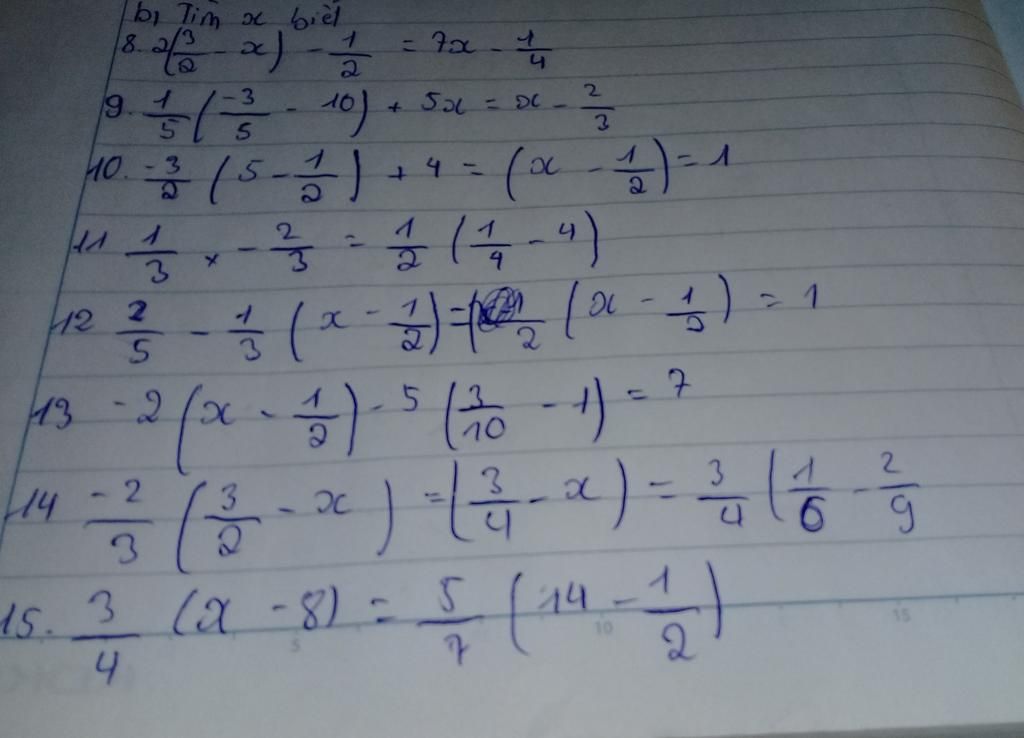 b, Tìm x biết
8. 2(3/2 - x) - 1/2 = 7x - 1/4
9. 1/5 (-3/5 - 10) + 5x = x - 2/3
10. -3/2 (5 - 1/2) + 4 = (x - 1/2) = 1
11 1/3 x - 2/3 = 1/2 (1/4 - 4)
12 2/5 - 1/3 (x - 1/2) = 1/2 (x - 1/2) = 1
13 -2 (x - 1/2) - 5 (3/10 - 1) = 7
14 -2/3 (3/2 - x) = (3/4 - x) = 3/4 (1/6 - 2/9
15. 3/4 (x - 8) = 5/7 (14 - 1/2)
5 10 15